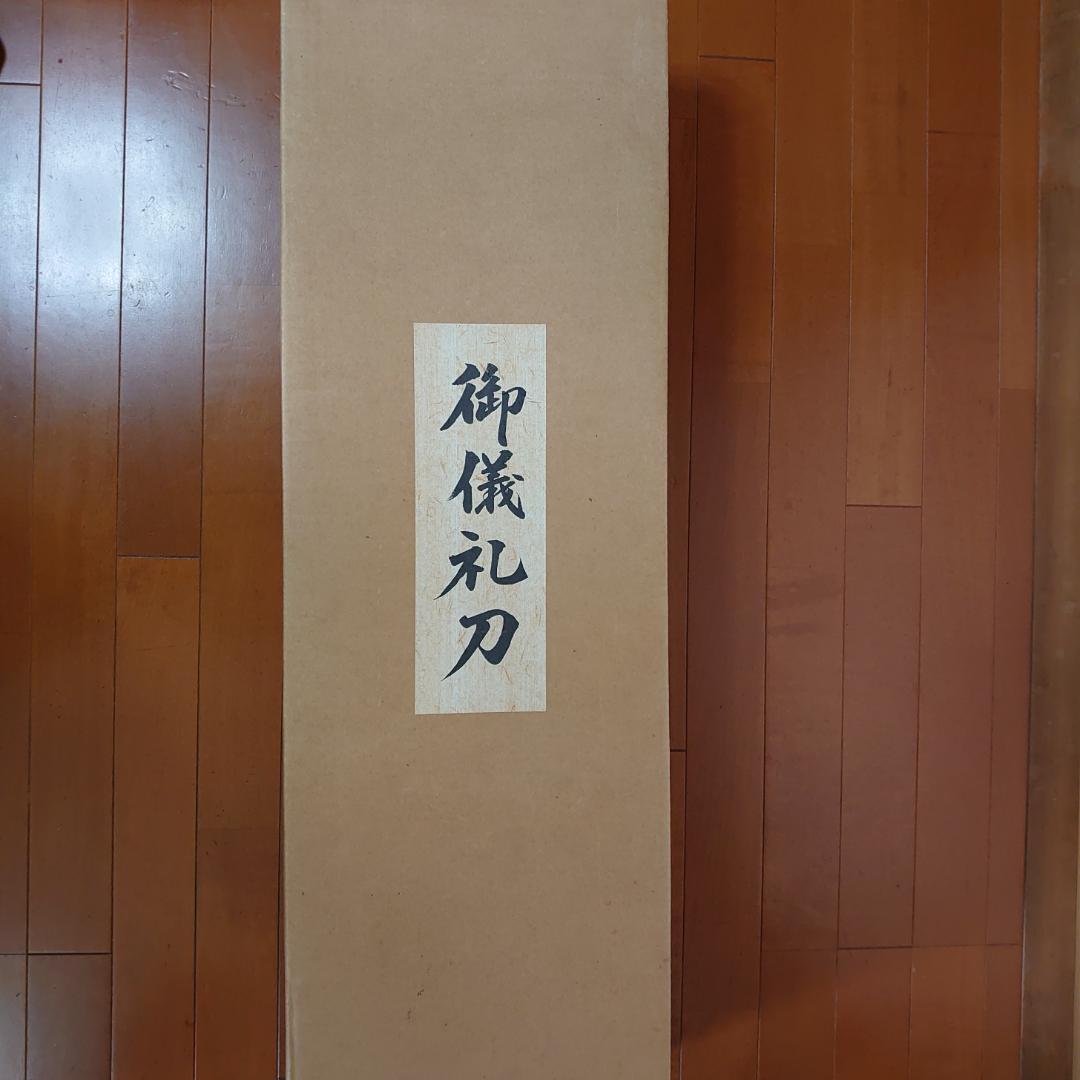 御儀礼刀